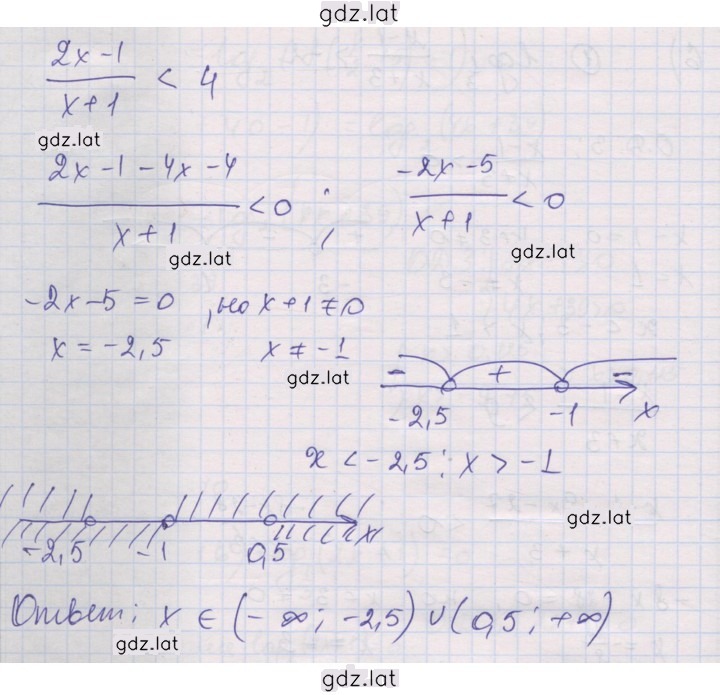 gdz.lat
(2x-1)/(x+1) < 4
gdz.lat
(2x-1-4x-4)/(x+1) < 0 ; (-2x-5)/(x+1) < 0
gdz.lat gdz.lat
-2x-5=0 , но x+1≠0
x=-2,5 x≠-1
gdz.lat
- + -
-2,5 -1 x
x<-2,5; x>-1
gdz.lat
-2,5 -1 0,5 x
Ответ: x ∈ (-∞; -2,5) ∪ (0,5; +∞)
gdz.lat
gdz.lat